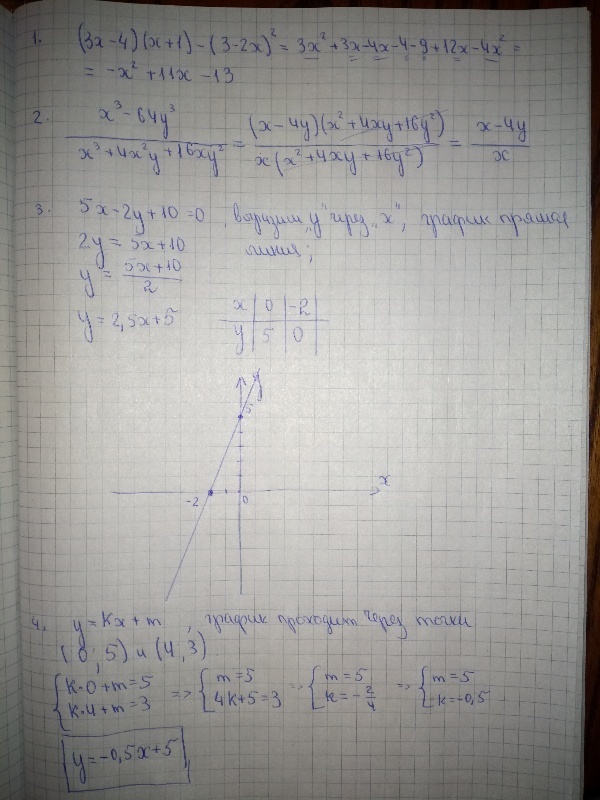 1. (3x-4)(x+1)-(3-2x)² = 3x²+3x-4x-4-9+12x-4x² =
= -x²+11x-13
2. x³-64y³ / x³+4x²y+16xy² = (x-4y)(x²+4xy+16y²) / x(x²+4xy+16y²) = x-4y / x
3. 5x-2y+10=0, выразим „y" через „x", график прямая
2y = 5x+10 линия;
y = 5x+10 / 2
y = 2,5x+5
x | 0 | -2
y | 5 | 0
y
5
x
-2 0
4. y = kx+m, график проходит через точки
(0; 5) и (4, 3)
{ k·0+m=5 => { m=5 => { m=5 => { m=5
{ k·4+m=3 { 4k+5=3 { k=-2/4 { k=-0,5
y=-0,5x+5